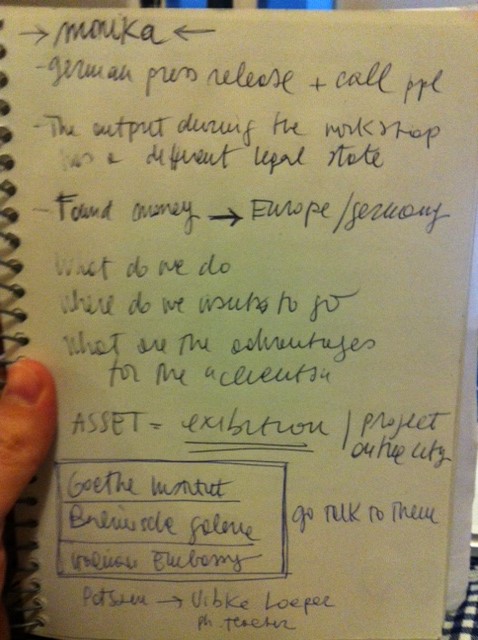 → monika ←
- German press release + call ppl
- The output during the workshop
has a different legal state
- Found money → Europe/germany
What do we do
Where do we to go
What are the advantages
for the
ASSET = exibition / project
on the city
Goethe Institut
galerie
Embassy
go talk to them
→ Vibke Loeper
ph. teacher